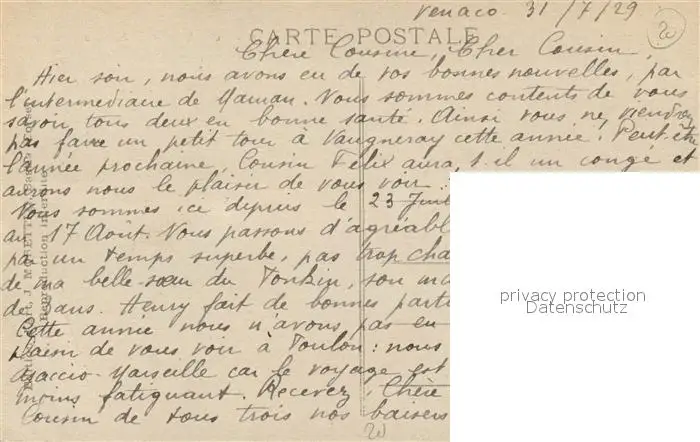 Venaco 31/7/29
CARTE POSTALE
Chère Cousine, Cher Cousin,
Hier soir, nous avons eu de vos bonnes nouvelles, par
l'intermédiaire de Maman. Nous sommes contents de vous
savoir tous deux en bonne santé. Ainsi vous ne viendrez
pas faire un petit tour à Vaugneray cette année. Peut-être
l'année prochaine, Cousin Félix aura-t-il un congé et
aurons nous le plaisir de vous voir.
Nous sommes ici depuis le 23 Juil
au 17 Août. Nous passons d'agréabl
par un temps superbe, pas trop cha
de ma belle-sœur du Tonkin, son ma
de sans. Henry fait de bonnes parti
Cette année nous n'avons pas eu
plaisir de vous voir à Toulon : nous
Ajaccio-Marseille car le voyage est
moins fatiguant. Recevez, Chère
Cousin de tous trois nos baisers
privacy protection
Datenschutz